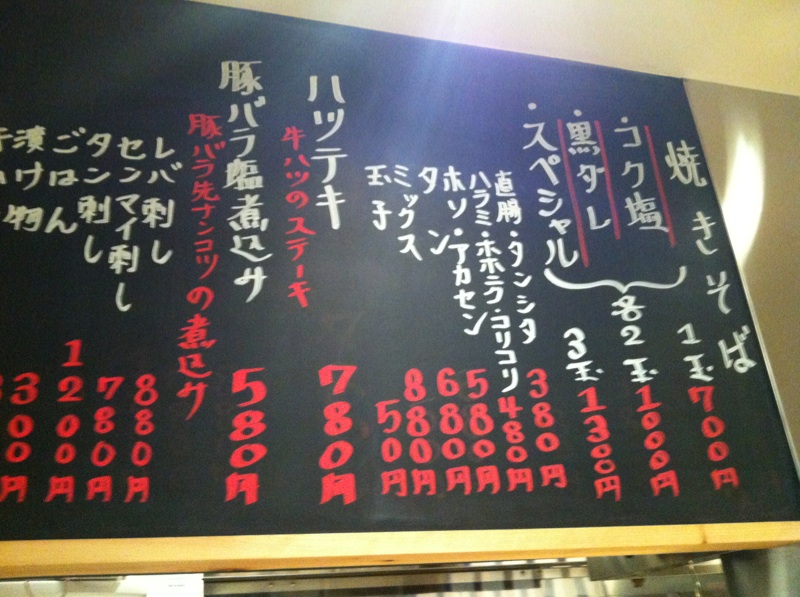 焼きそば
・コク塩
・黒ダレ
・スペシャル
各
1玉700円
2玉1000円
3玉1300円
直腸・タンシタ380円
ハラミ・ホホニク・コリコリ480円
ホソ・アカセン580円
タン680円
ミックス880円
玉子50円
ハツテキ780円
牛ハツのステーキ
豚バラ塩煮込み580円
豚バラ先ナンコツの煮込み
レバ刺し880円
センマイ刺し780円
タン刺し1200円
ごはん
漬け物
300円
円